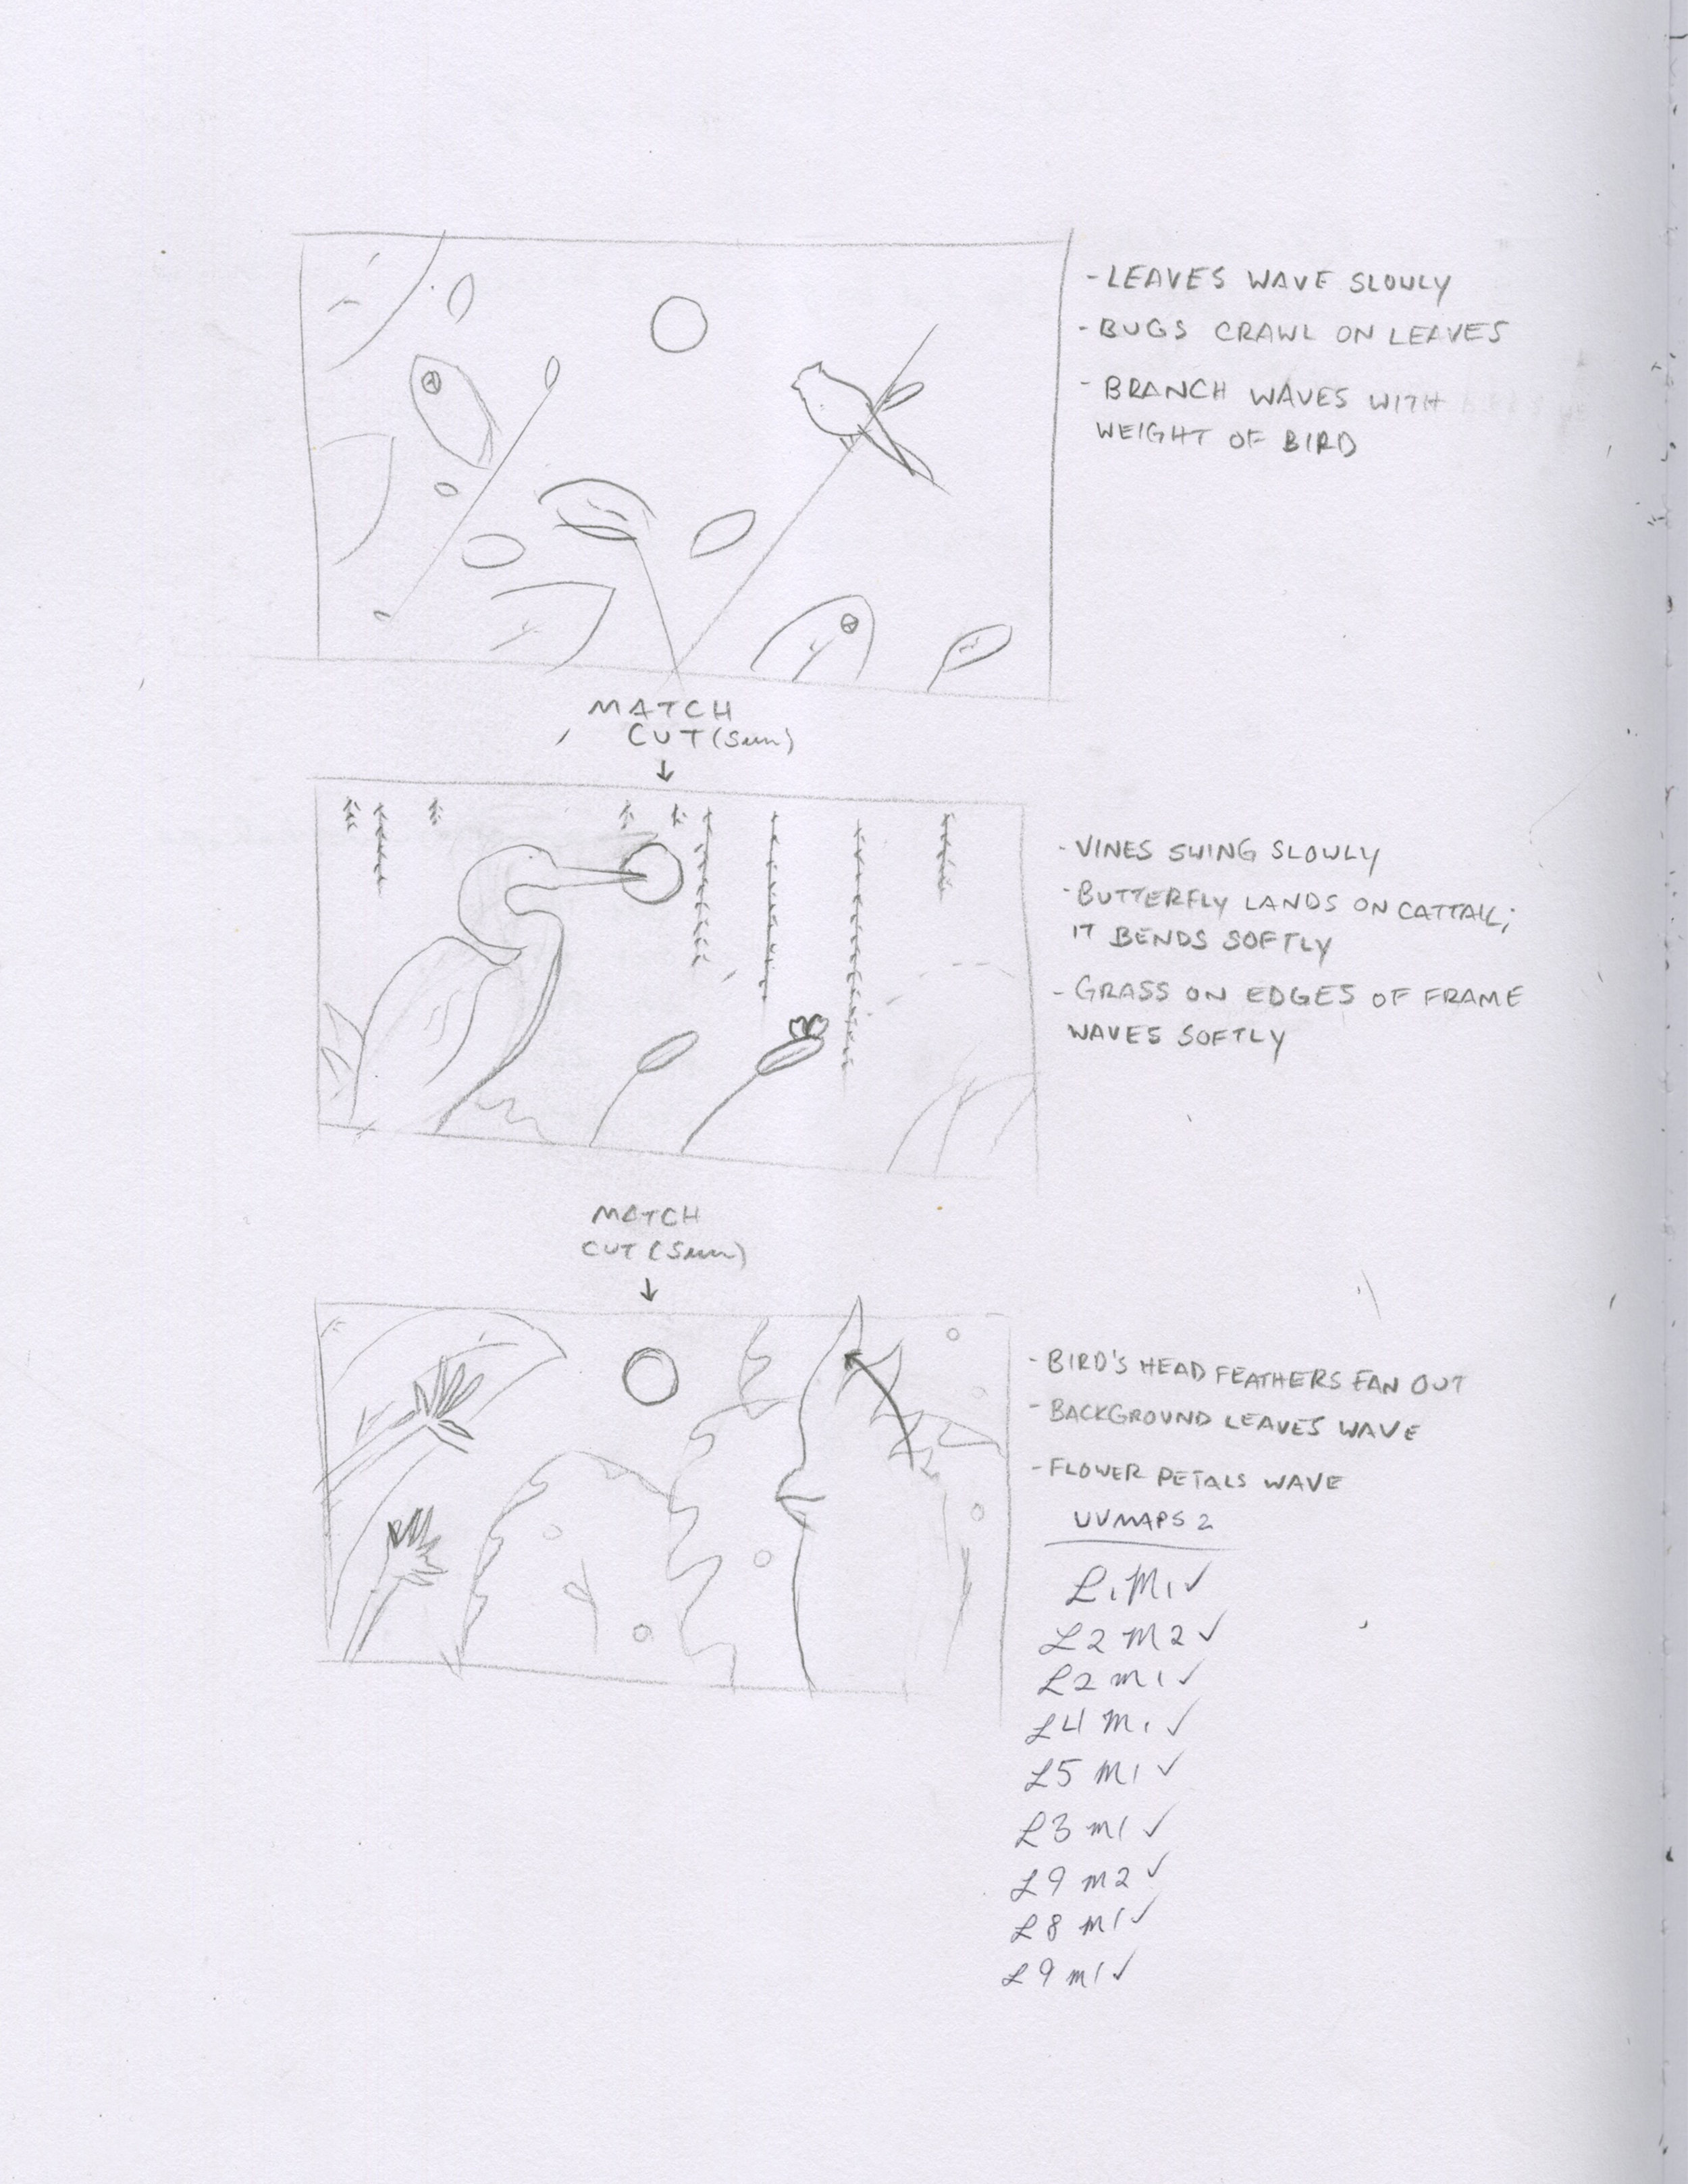 - LEAVES WAVE SLOWLY
- BUGS CRAWL ON LEAVES
- BRANCH WAVES WITH
WEIGHT OF BIRD
MATCH
CUT (Sun)
- VINES SWING SLOWLY
- BUTTERFLY LANDS ON CATTAIL;
IT BENDS SOFTLY
- GRASS ON EDGES OF FRAME
WAVES SOFTLY
MATCH
CUT (Sun)
- BIRD'S HEAD FEATHERS FAN OUT
- BACKGROUND LEAVES WAVE
- FLOWER PETALS WAVE
UVMAPS 2
L1 M1 ✓
L2 M2 ✓
L2 M1 ✓
L4 M1 ✓
L5 M1 ✓
L3 M1 ✓
L9 M2 ✓
L8 M1 ✓
L9 M1 ✓